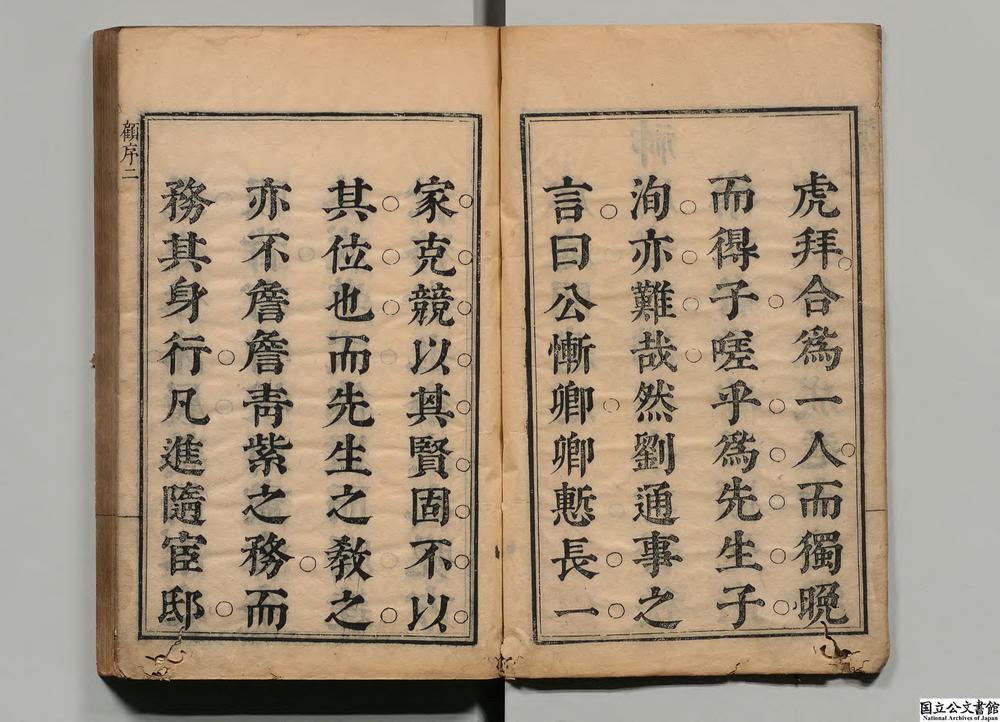 虎拜合爲一人而獨晚
而得子嗟乎爲先生子
洵亦難哉然劉通事之
言曰公慚卿卿慙長一
家克競以其賢固不以
其位也而先生之教之
亦不詹詹靑紫之務而
務其身行凡進隨宦邸
顧序二
国立公文書館
National Archives of Japan